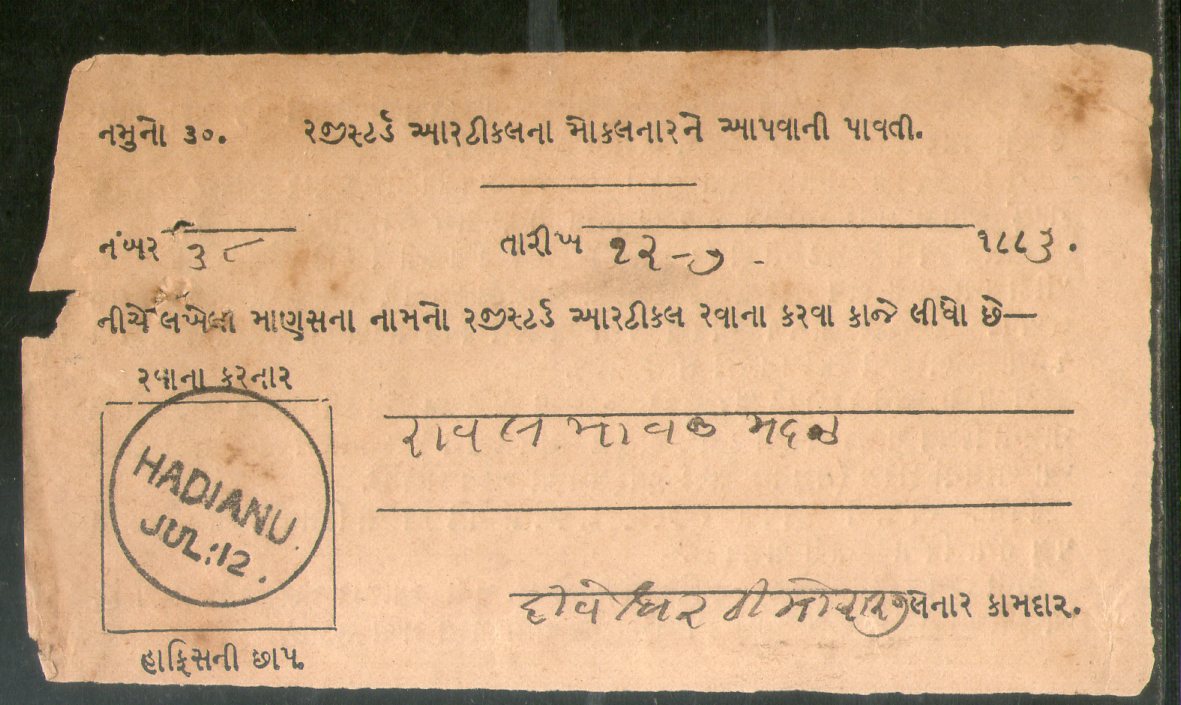 નમુનો ૩૦. રજીસ્ટર્ડ આરટીકલના મોકલનારને આપવાની પાવતી.
નંબર ૩૮ તારીખ ૧૨-૭- ૧૮૮૩.
નીચે લખેલા માણસના નામનો રજીસ્ટર્ડ આરટીકલ રવાના કરવા કાજે લીધો છે—
રવાના કરનાર
રાવલ માવજી
HADIANU.
JUL:12.
લેનાર કામદાર.
હાફિસની છાપ.